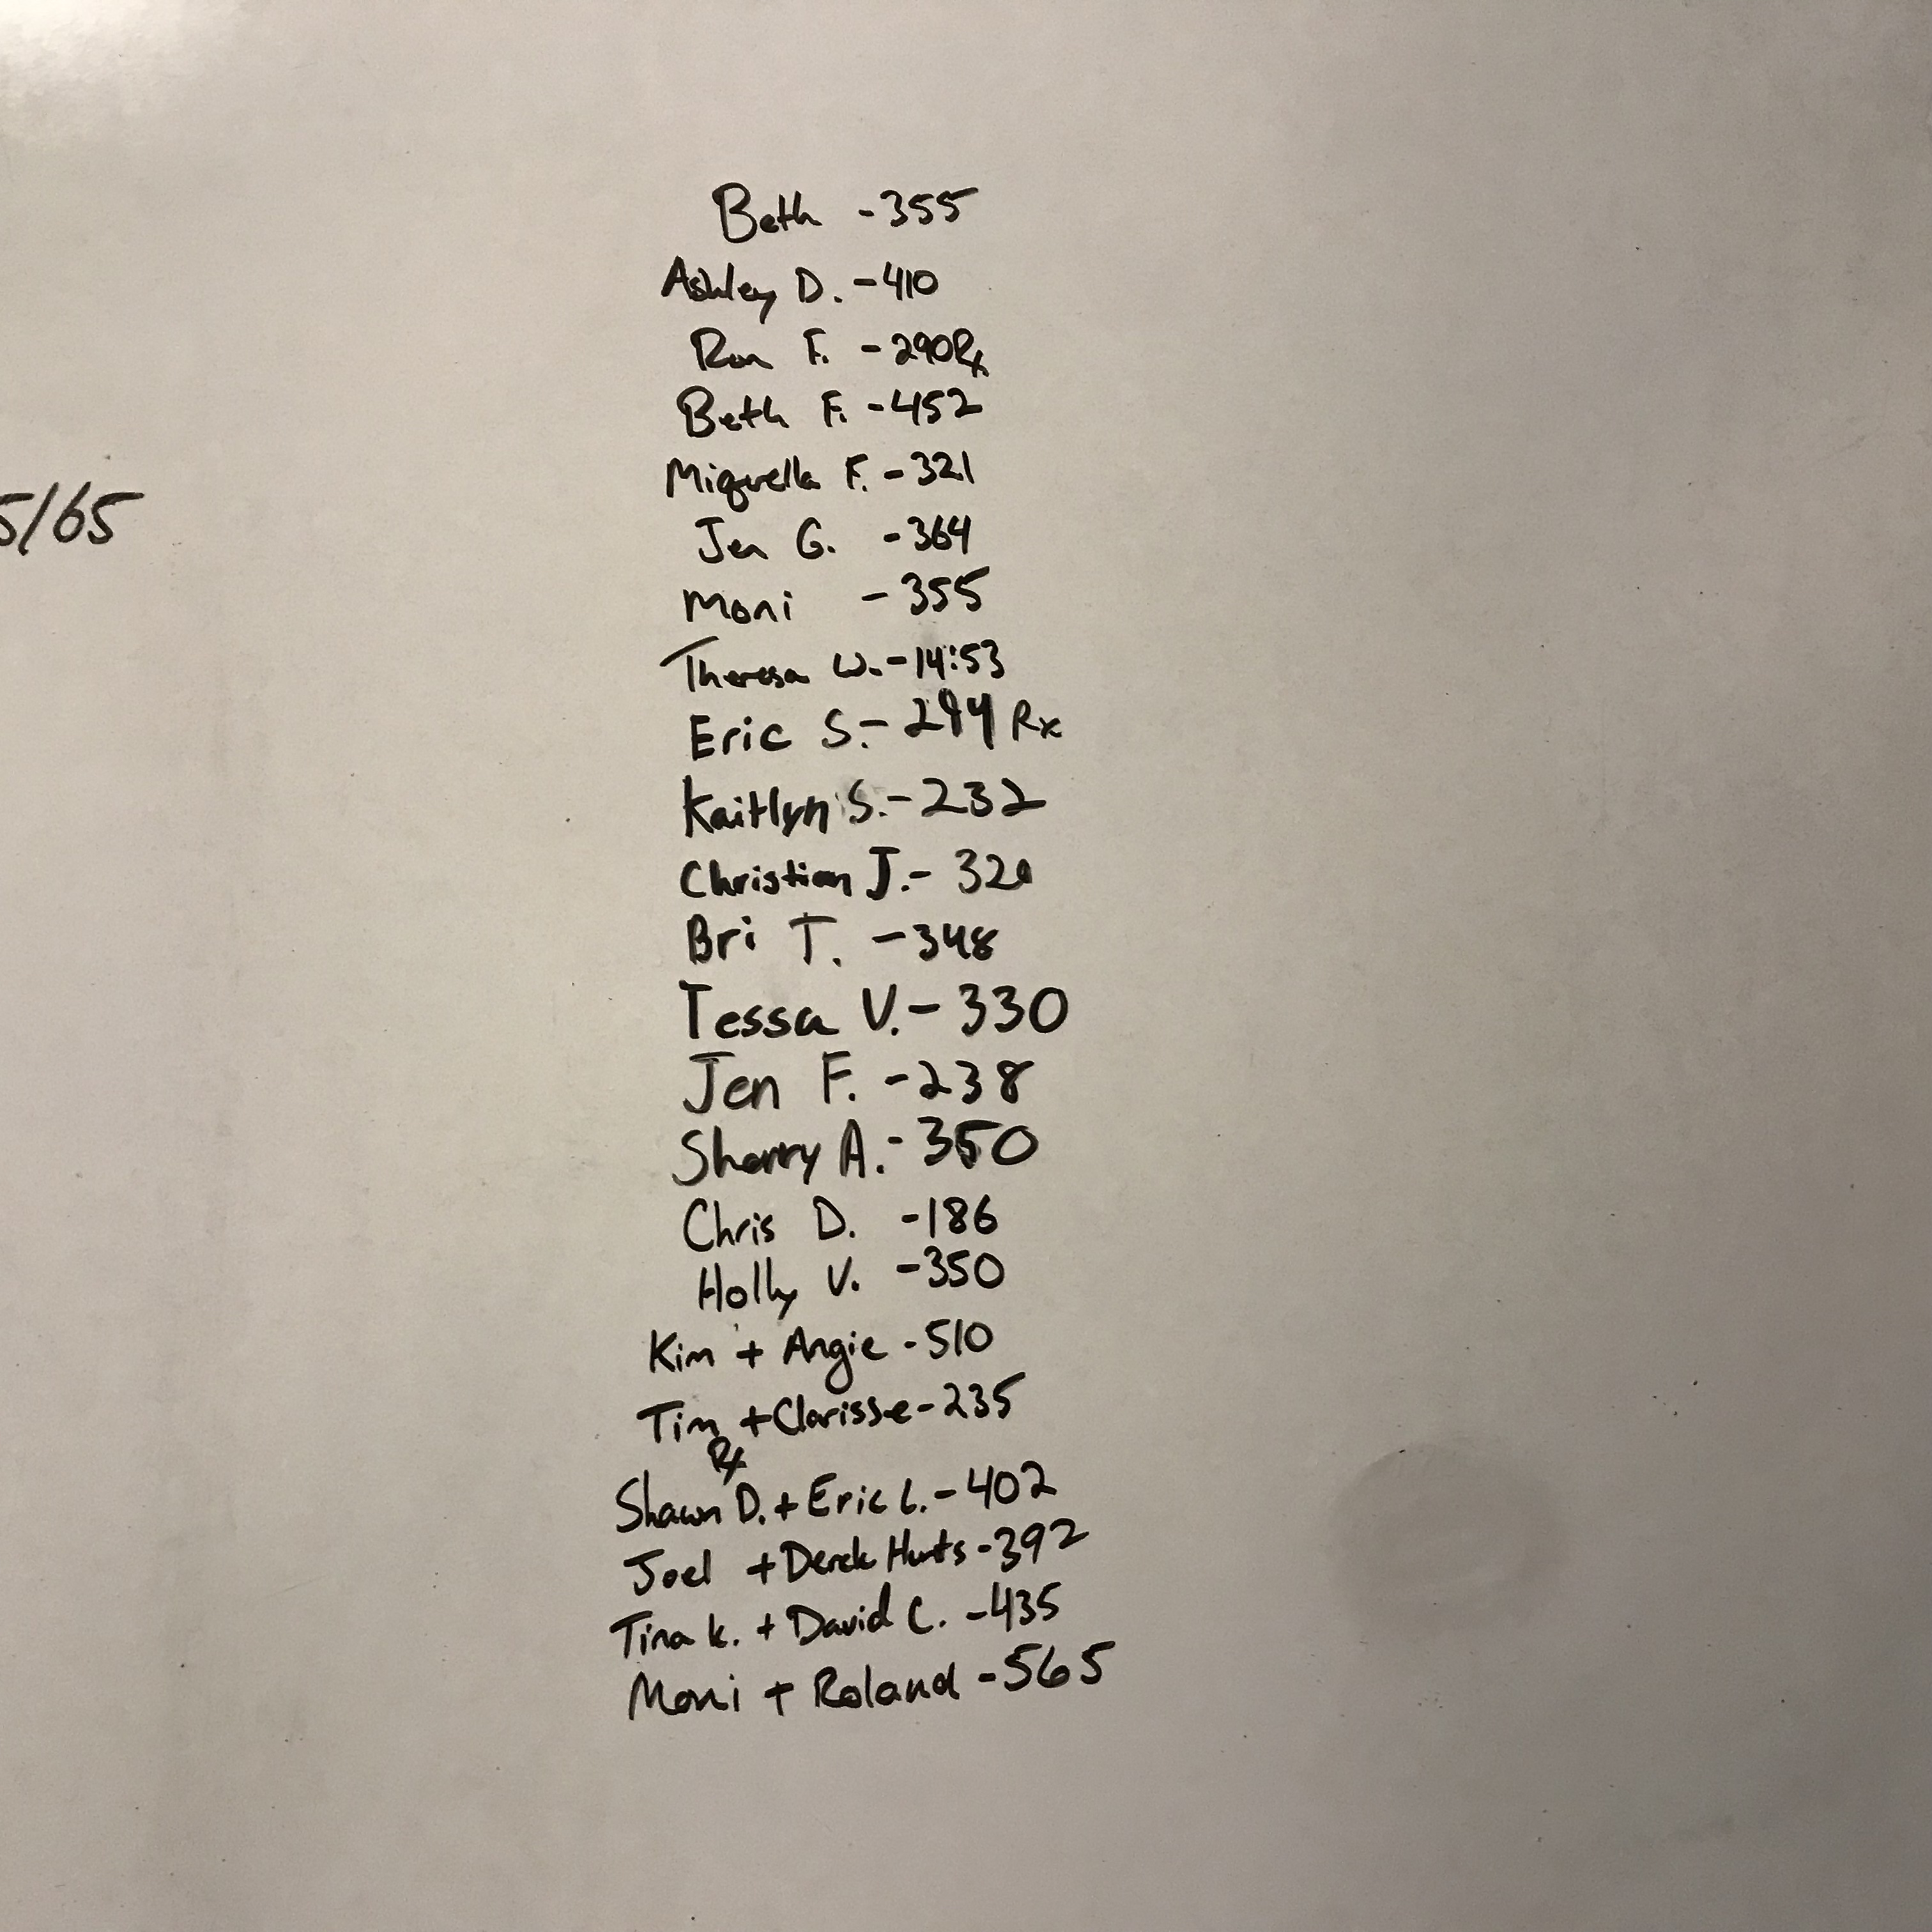 Beth - 355
Ashley D. - 410
Ron F. - 290 Rx
Beth F. - 452
Miquella F. - 321
Jen G. - 364
5/65
Moni - 355
Theresa W. - 14:53
Eric S. - Rx
Kaitlyn S. - 232
Christian J. - 320
Bri T. - 348
Tessa V. - 330
Jen F. - 238
Sherry A. - 350
Chris D. - 186
Holly V. - 350
Kim + Angie - 510
Tim + Clarisse - 235
Rx
Shawn D. + Eric L. - 402
Joel + Derek - 392
Tina K. + David C. - 435
Moni + Roland - 565